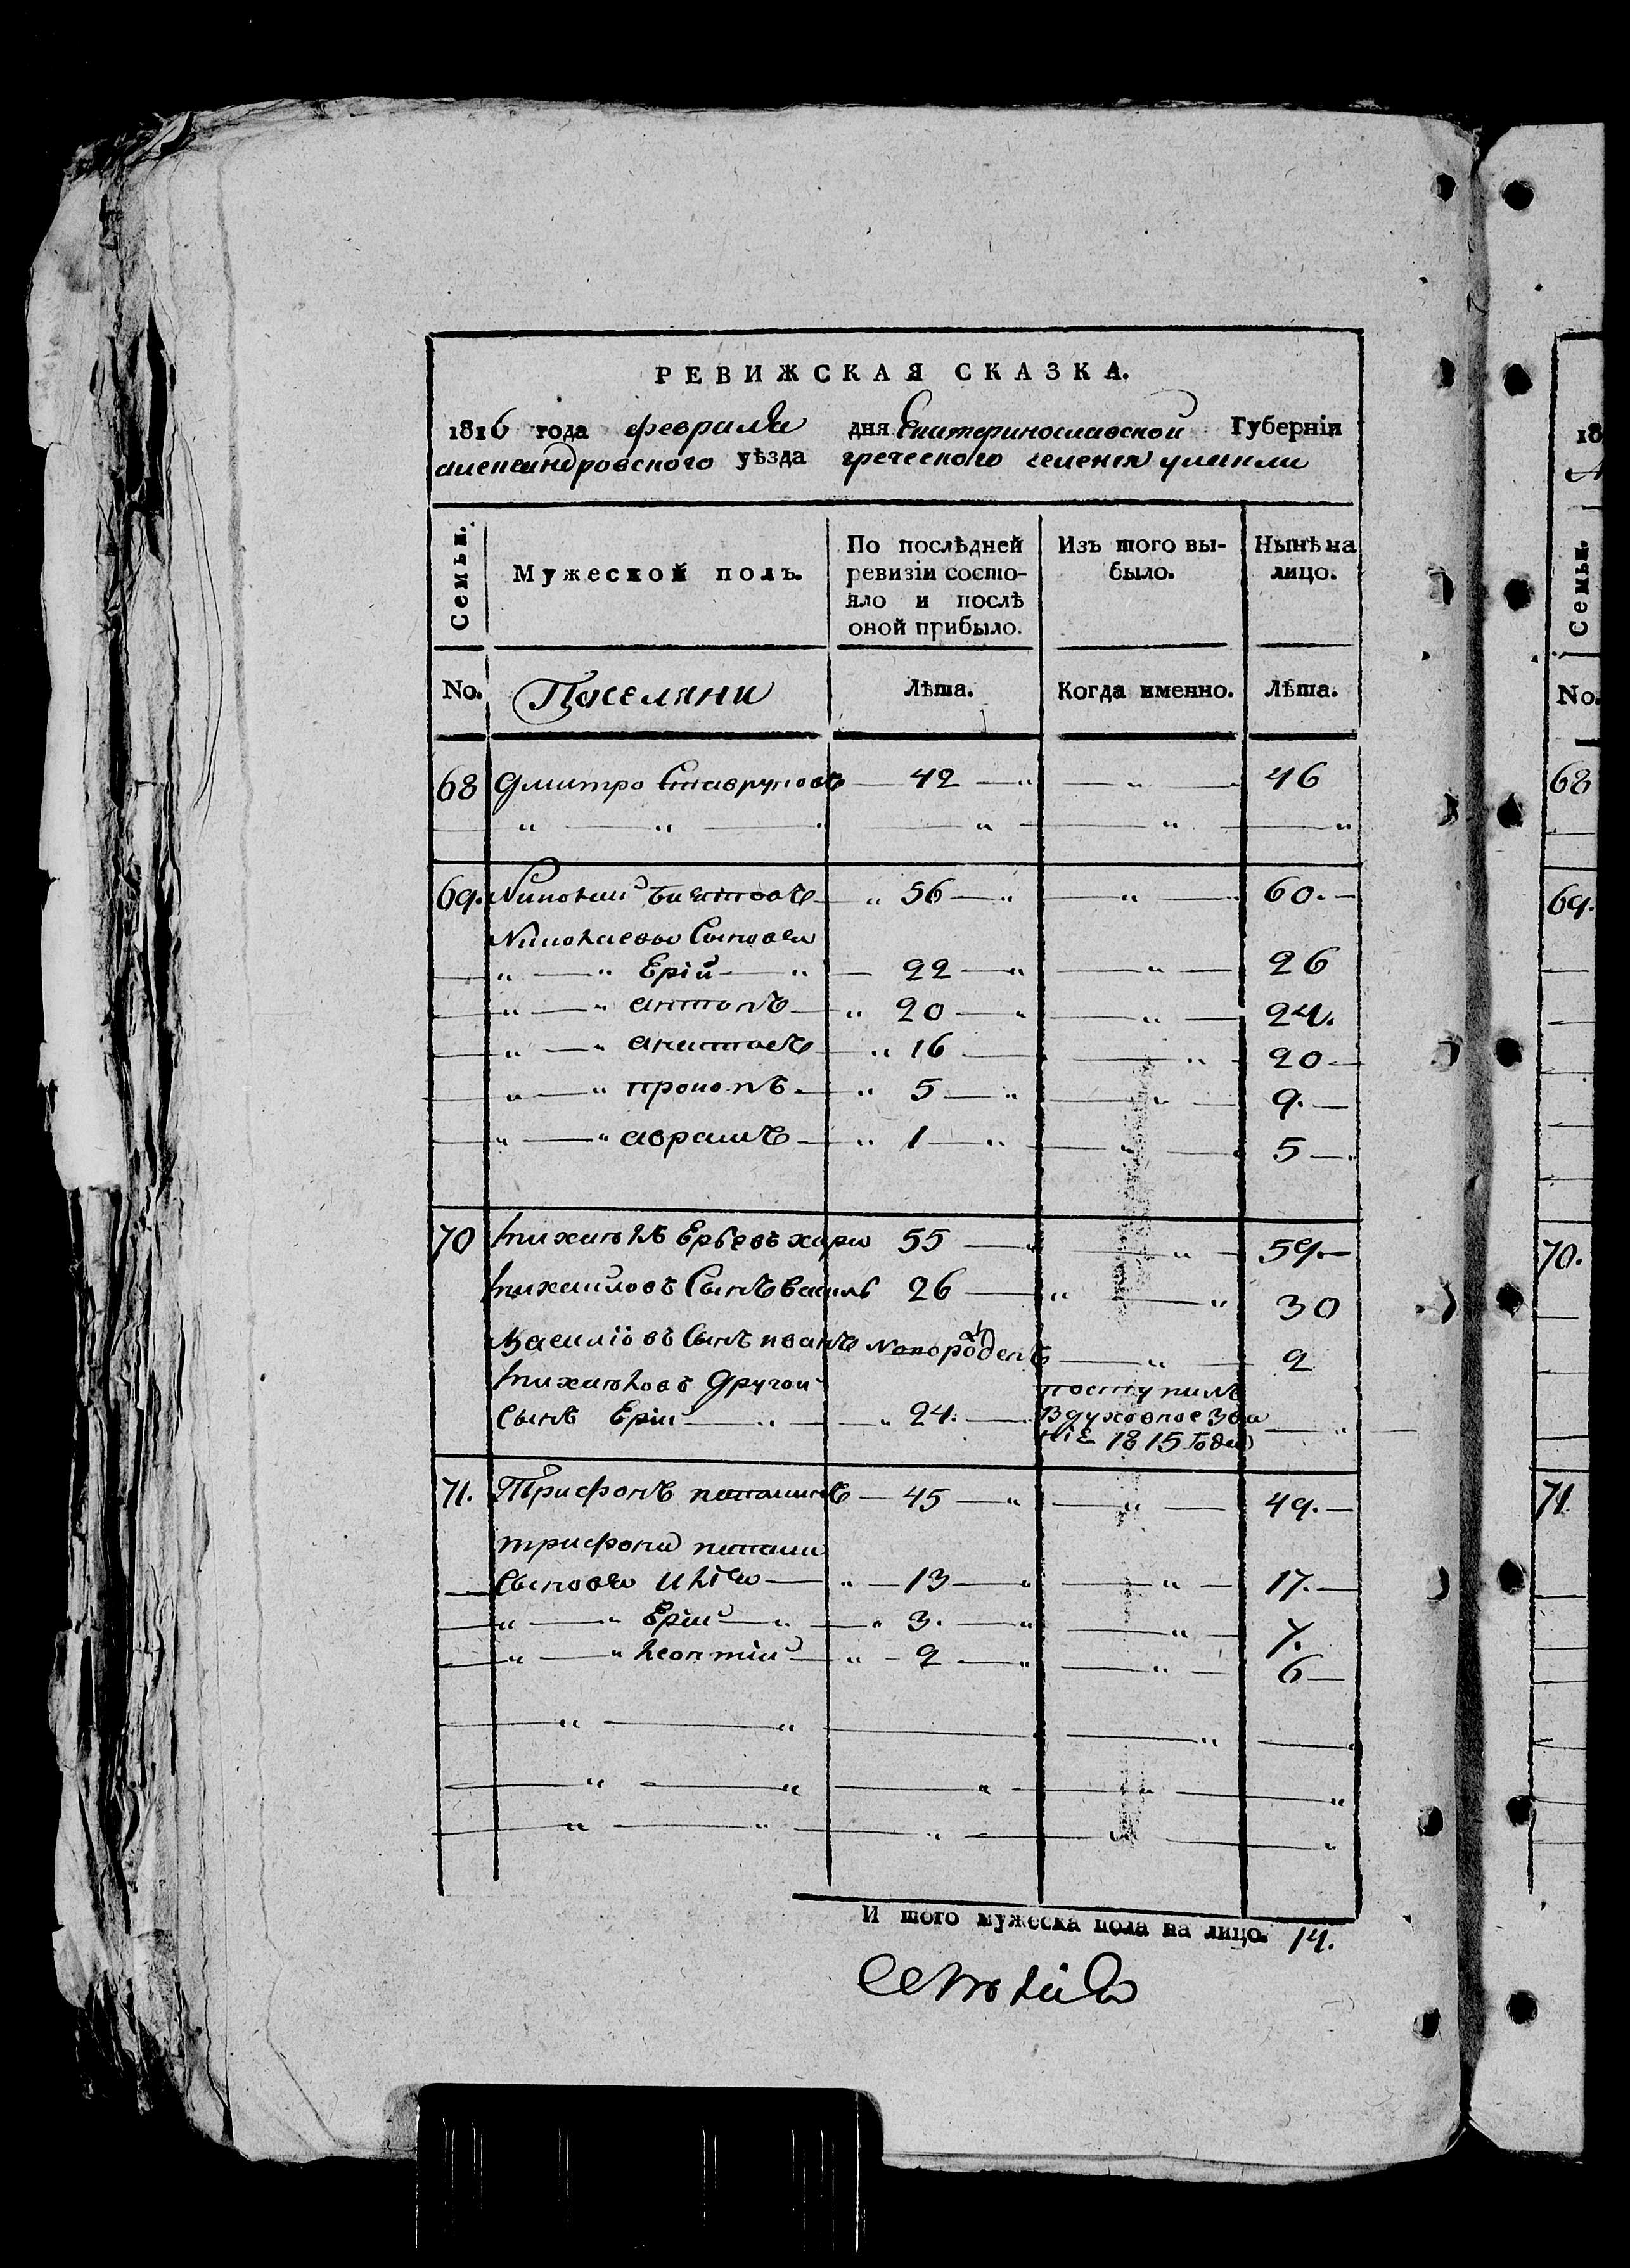 РЕВИЖСКАЯ СКАЗКА.
1816 года февраля дня Екатеринославской Губерніи
александровского уѣзда греческого селенія улакли
Семьи.
Мужеской полъ.
По послѣдней ревизіи состо-
яло и послѣ
оной прибыло.
Изъ того вы-
было.
Нынѣ на
лицо.
No. Поселяни Лѣта. Когда именно. Лѣта.
68 Дмитро Ставруповъ — 42 — " — " — 46
69. Николай " 56 — " — " — 60. —
Николаевы Сыновья
" — " Ерій — " — 22 — " — " — 26
" — " антонъ — " 20 — " — " — 24.
" — " — " 16 — " — 20 —
" — " прокопъ — " 5 — " — " — 9. —
" — " аврамъ — " 1 — " — " — 5 —
70 михаилъ Ерьевъ хара 55 — " — 59. —
михаиловъ Сынъ василь 26 — " — " 30
Василіовъ Сынъ иванъ новороденъ — " — 2
михаиловъ другой
Сынъ Ерій — " — " 24. — поступилъ
в духовное зва
ніе 1815 Года — "
71. Трифонъ — 45 — " — " — 49. —
трифона
Сыновья Илія — " — 13 — " — " — 17. —
" — " Ерій — " — " 3. — " — " — 7.
" — " леонтій — " — 2 — " — " — 6 —
И того мужеска пола на лицо. 14.
18
Семьи.
No.
68
69.
70.
71